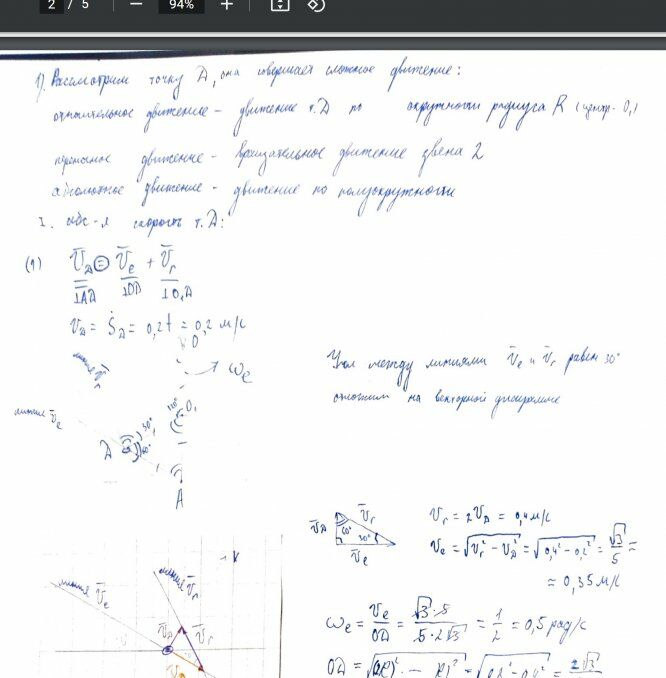 2 / 5 — 94% +
1). Рассмотрим точку D, она совершает сложное движение:
относительное движение - движение т.D по окружности радиуса R (центр - O₁)
переносное движение - вращательное движение звена 2
абсолютное движение - движение по полуокружности
I. абс-я скорость т.D:
(1) V̄_D = V̄_e + V̄_r
⊥AD ⊥OD ⊥O₁D
V_D = Ṡ_D = 0,2t = 0,2 м/с
O
линия V̄_r
ω_e
Угол между линиями V̄_e и V̄_r равен 30°
отложим на векторной диаграмме
линия V̄_e
120° O₁
30°
D 60°
A
V̄_D V̄_r
60° 30°
V̄_e
V_r = 2V_D = 0,4 м/с
V_e = √(V_r² - V_D²) = √(0,4² - 0,2²) = √3/5 =
≈ 0,35 м/с
линия V̄_e
линия V̄_r
V̄_D V̄_r
ω_e = V_e/OD = √3·5/5·2√3 = 1/2 = 0,5 рад/с